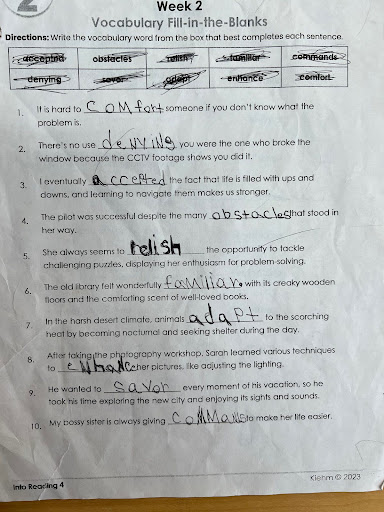 2
Week 2
Vocabulary Fill-in-the-Blanks
Directions: Write the vocabulary word from the box that best completes each sentence.
accepted obstacles relish familiar commands
denying savor adapt enhance comfort
1. It is hard to comfort someone if you don't know what the
problem is.
2. There's no use denying you were the one who broke the
window because the CCTV footage shows you did it.
3. I eventually accepted the fact that life is filled with ups and
downs, and learning to navigate them makes us stronger.
4. The pilot was successful despite the many obstacles that stood in
her way.
5. She always seems to relish the opportunity to tackle
challenging puzzles, displaying her enthusiasm for problem-solving.
6. The old library felt wonderfully familiar with its creaky wooden
floors and the comforting scent of well-loved books.
7. In the harsh desert climate, animals adapt to the scorching
heat by becoming nocturnal and seeking shelter during the day.
8. After taking the photography workshop, Sarah learned various techniques
to enhance her pictures, like adjusting the lighting.
9. He wanted to savor every moment of his vacation, so he
took his time exploring the new city and enjoying its sights and sounds.
10. My bossy sister is always giving commands to make her life easier.
Into Reading 4
Kiehm © 2023